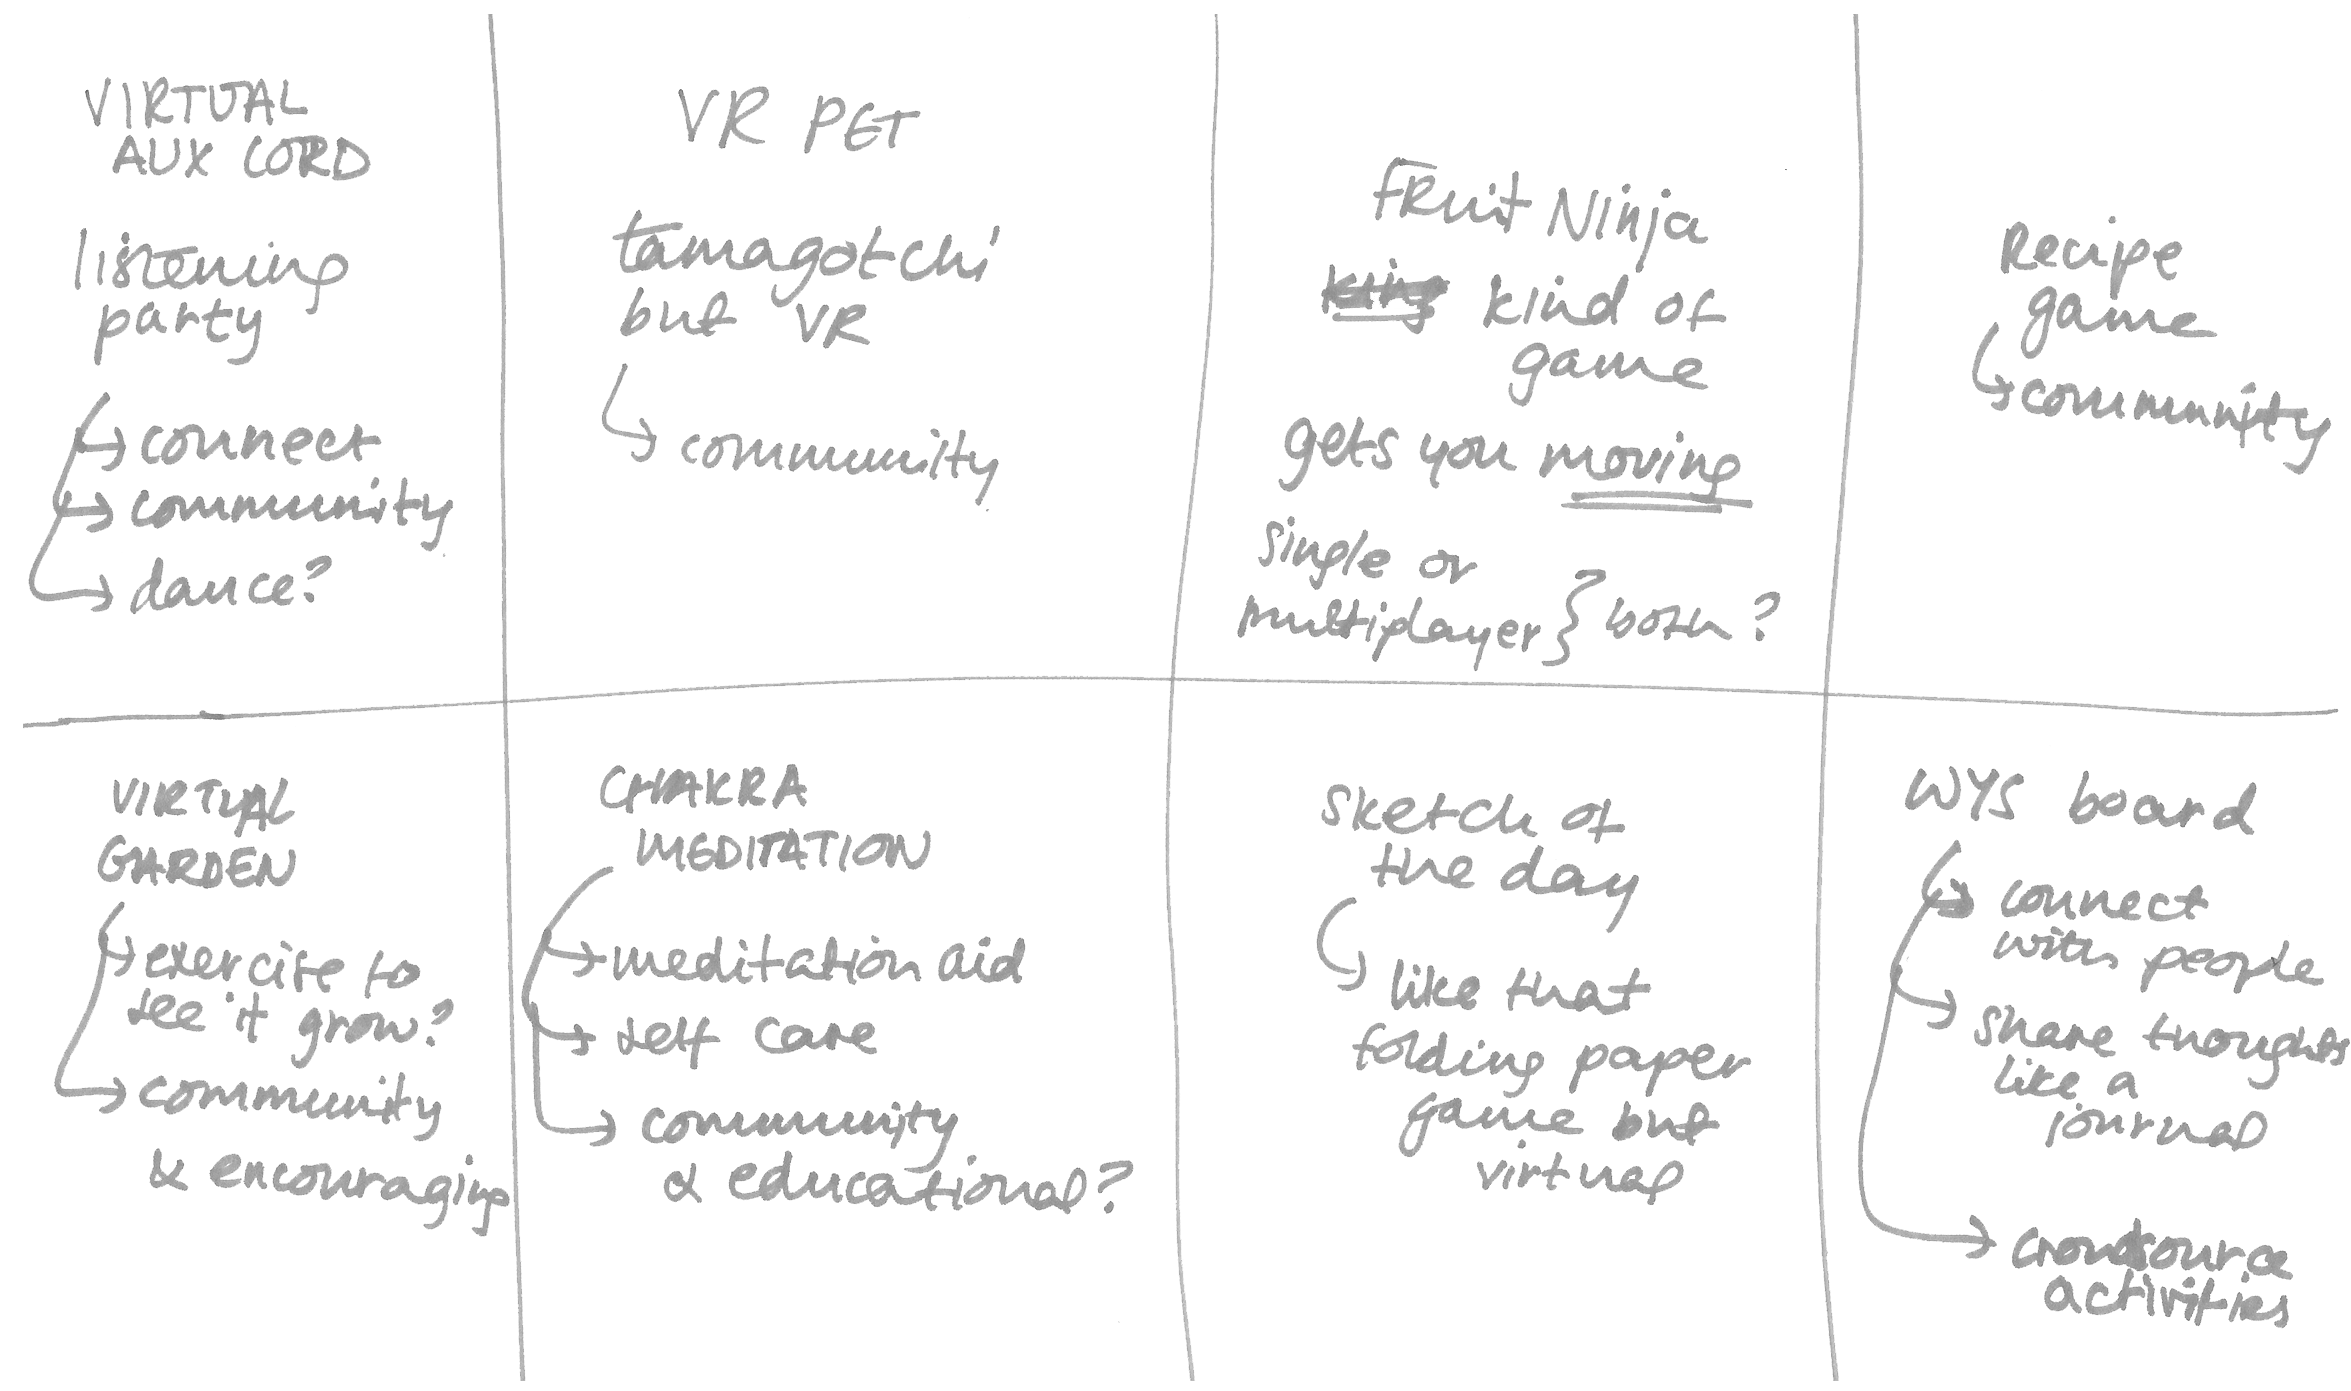 VIRTUAL
AUX CORD
listening
party
connect
community
dance?
VR PET
tamagotchi
but VR
community
FRuit Ninja
kind of
game
gets you moving
single or
multiplayer } both?
Recipe
game
community
VIRTUAL
GARDEN
exercise to
see it grow?
community
& encouraging
CHAKRA
MEDITATION
meditation aid
self care
community
& educational?
sketch of
the day
like that
folding paper
game but
virtual
WYS board
connect
with people
share thoughts
like a
journal
crowdsource
activities